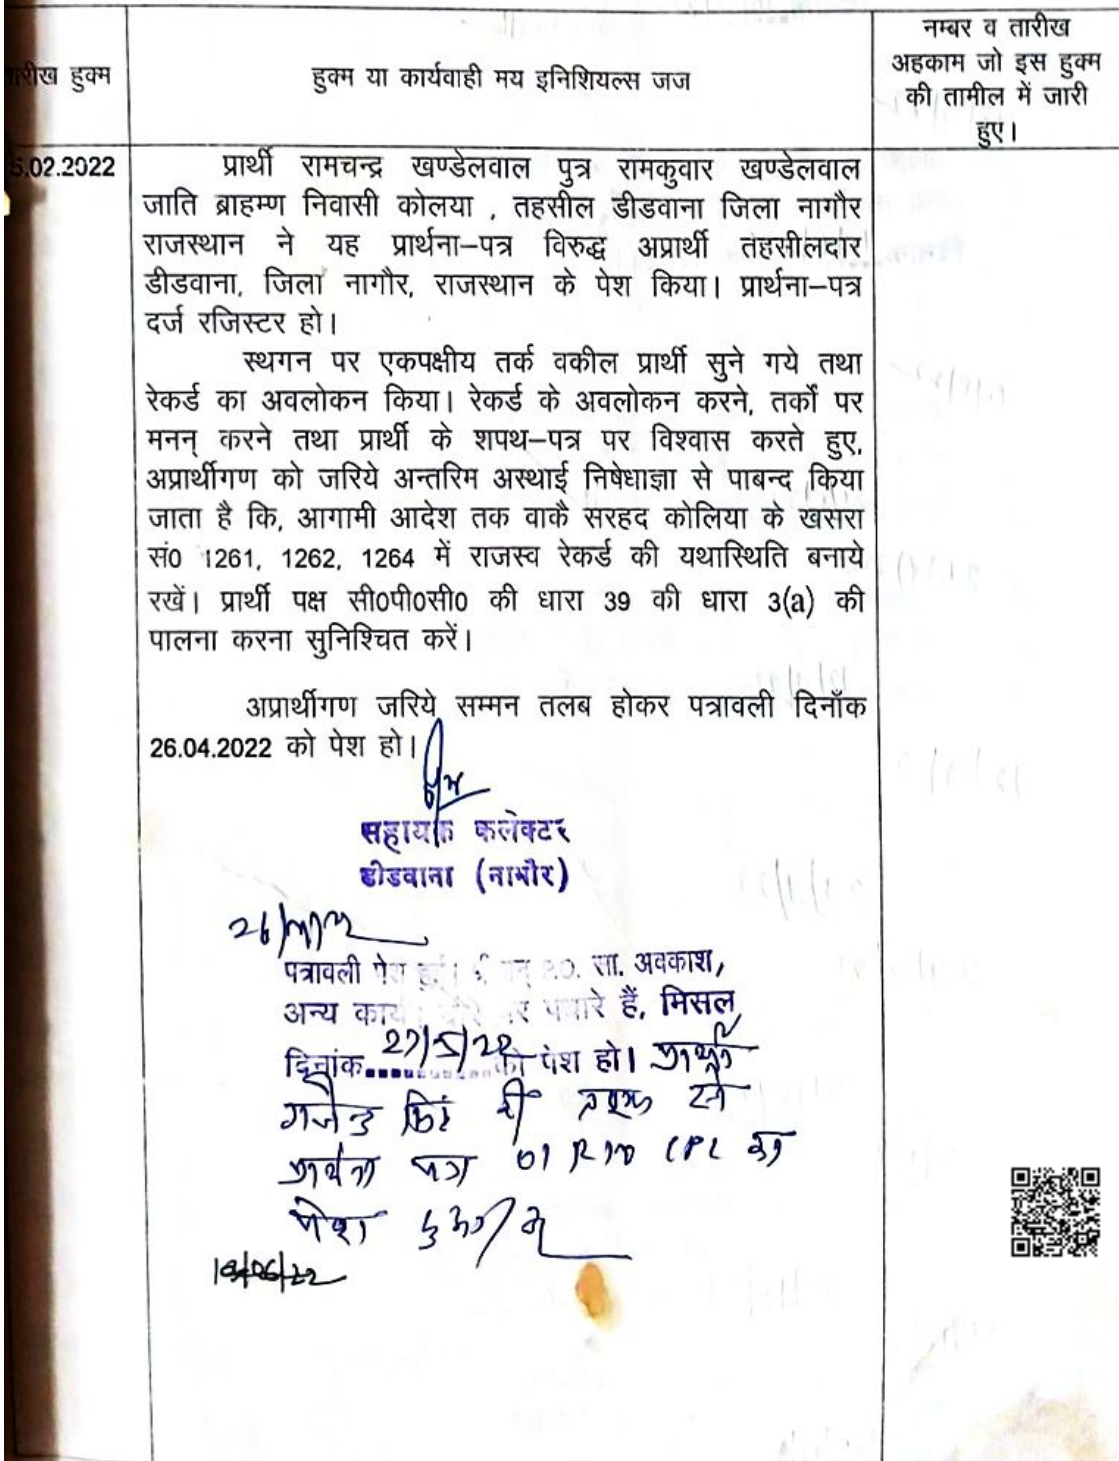 तारीख हुक्म
हुक्म या कार्यवाही मय इनिशियल्स जज
नम्बर व तारीख
अहकाम जो इस हुक्म
की तामील में जारी
हुए।
5.02.2022
प्रार्थी रामचन्द्र खण्डेलवाल पुत्र रामकुवार खण्डेलवाल
जाति ब्राहम्ण निवासी कोलया , तहसील डीडवाना जिला नागौर
राजस्थान ने यह प्रार्थना–पत्र विरुद्ध अप्रार्थी तहसीलदार
डीडवाना, जिला नागौर, राजस्थान के पेश किया। प्रार्थना–पत्र
दर्ज रजिस्टर हो।
स्थगन पर एकपक्षीय तर्क वकील प्रार्थी सुने गये तथा
रेकर्ड का अवलोकन किया। रेकर्ड के अवलोकन करने, तर्कों पर
मनन् करने तथा प्रार्थी के शपथ–पत्र पर विश्वास करते हुए,
अप्रार्थीगण को जरिये अन्तरिम अस्थाई निषेधाज्ञा से पाबन्द किया
जाता है कि, आगामी आदेश तक वाकै सरहद कोलिया के खसरा
सं0 1261, 1262, 1264 में राजस्व रेकर्ड की यथास्थिति बनाये
रखें। प्रार्थी पक्ष सी0पी0सी0 की धारा 39 की धारा 3(a) की
पालना करना सुनिश्चित करें।
अप्रार्थीगण जरिये सम्मन तलब होकर पत्रावली दिनाँक
26.04.2022 को पेश हो।
सहायक कलेक्टर
डीडवाना (नागौर)
पत्रावली पेश हुई। सा. अवकाश,
अन्य कार्य पर पधारे हैं, मिसल
दिनांक 27/5/22 को पेश हो। प्रार्थी
प्रार्थना पत्र
पेश हुआ